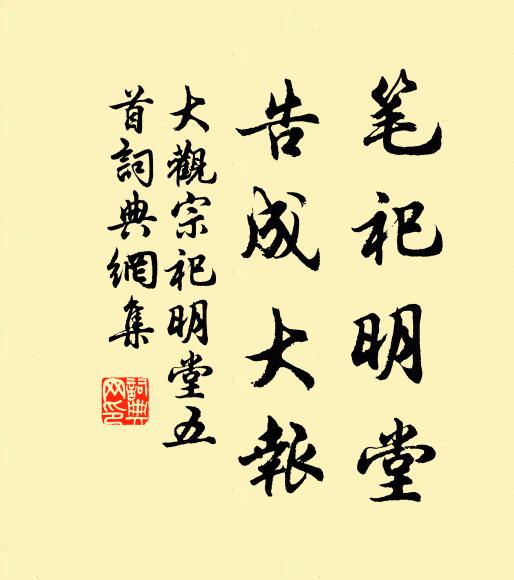 笔祀明堂
告成大報
大觀宗祀明堂五
首詞典網集
詞典網印